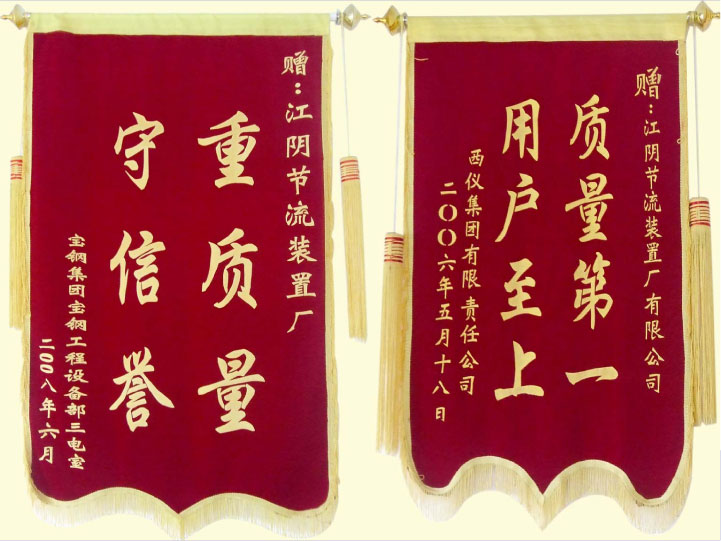 赠：江阴节流装置厂
重质量
守信誉
宝钢集团宝钢工程设备部三电室
二〇〇八年六月
赠：江阴节流装置厂有限公司
质量第一
用户至上
西仪集团有限责任公司
二〇〇六年五月十八日